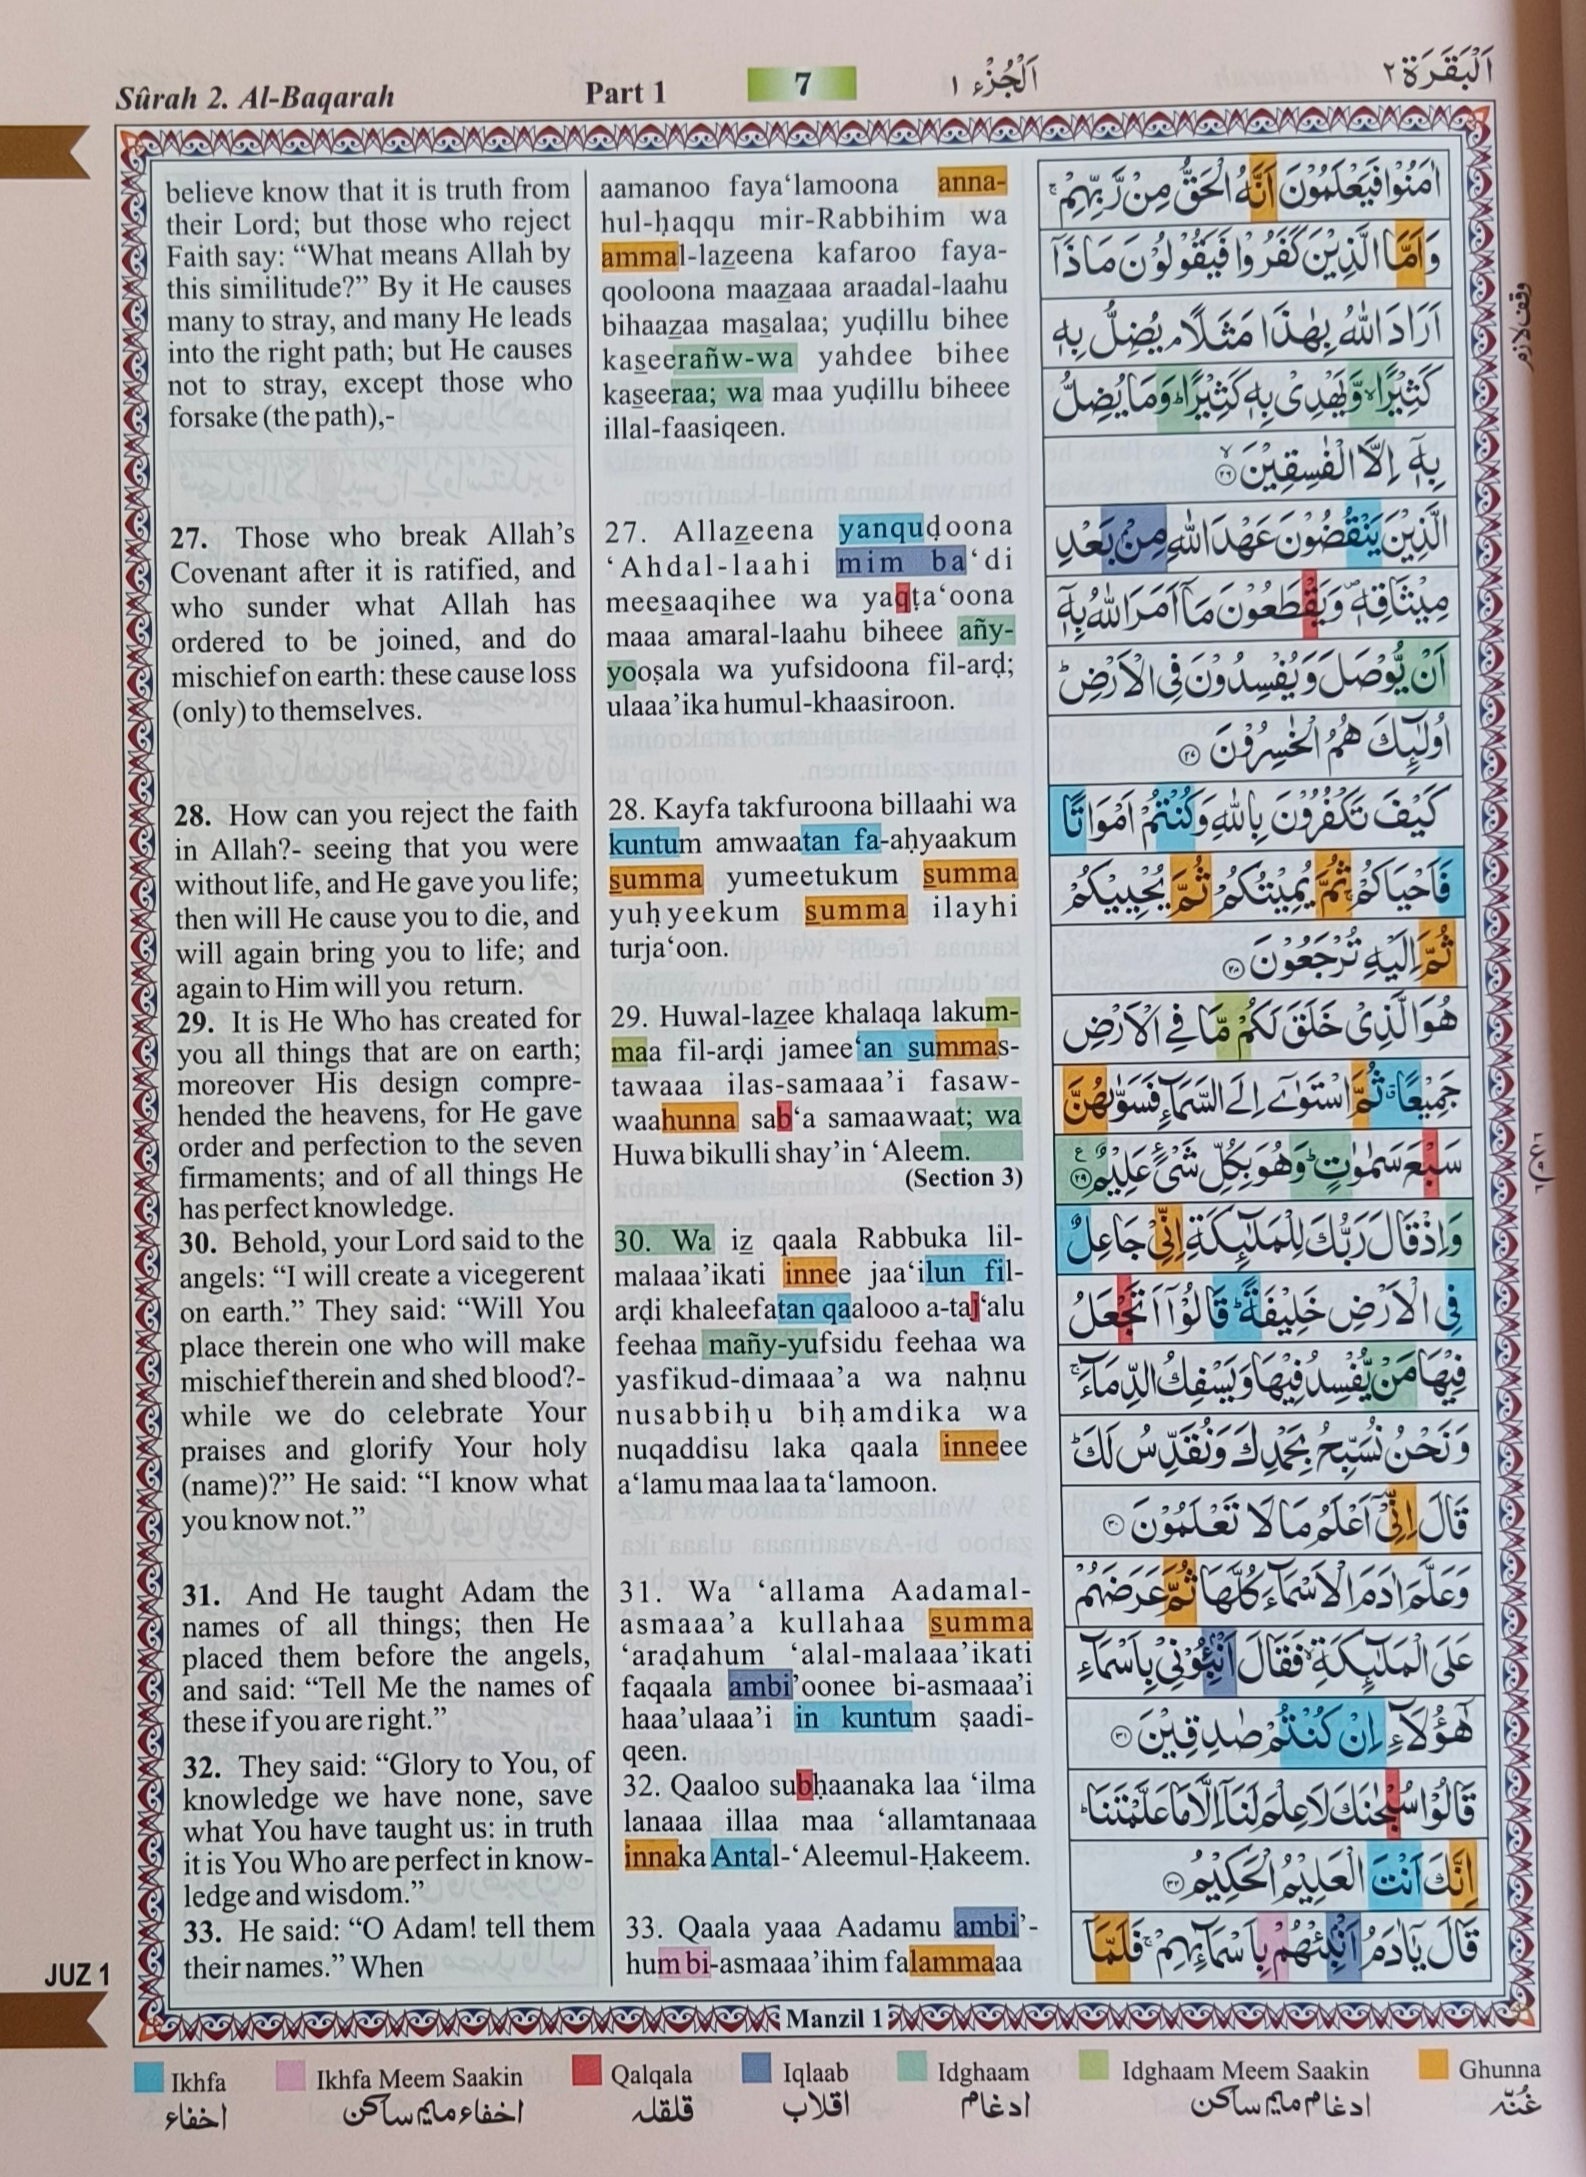 Sûrah 2. Al-Baqarah
Part 1
7
اَلْجُزْء ١
اَلْبَقَرَة ٢
believe know that it is truth from
their Lord; but those who reject
Faith say: “What means Allah by
this similitude?” By it He causes
many to stray, and many He leads
into the right path; but He causes
not to stray, except those who
forsake (the path),-
27. Those who break Allah’s
Covenant after it is ratified, and
who sunder what Allah has
ordered to be joined, and do
mischief on earth: these cause loss
(only) to themselves.
28. How can you reject the faith
in Allah?- seeing that you were
without life, and He gave you life;
then will He cause you to die, and
will again bring you to life; and
again to Him will you return.
29. It is He Who has created for
you all things that are on earth;
moreover His design compre-
hended the heavens, for He gave
order and perfection to the seven
firmaments; and of all things He
has perfect knowledge.
30. Behold, your Lord said to the
angels: “I will create a vicegerent
on earth.” They said: “Will You
place therein one who will make
mischief therein and shed blood?-
while we do celebrate Your
praises and glorify Your holy
(name)?” He said: “I know what
you know not.”
31. And He taught Adam the
names of all things; then He
placed them before the angels,
and said: “Tell Me the names of
these if you are right.”
32. They said: “Glory to You, of
knowledge we have none, save
what You have taught us: in truth
it is You Who are perfect in know-
ledge and wisdom.”
33. He said: “O Adam! tell them
their names.” When
aamanoo faya‘lamoona anna-
hul-ḥaqqu mir-Rabbihim wa
ammal-lazeena kafaroo faya-
qooloona maazaaa araadal-laahu
bihaazaa masalaa; yuḍillu bihee
kaseerañw-wa yahdee bihee
kaseeraa; wa maa yuḍillu biheee
illal-faasiqeen.
27. Allazeena yanquḍoona
‘Ahdal-laahi mim ba‘di
meesaaqihee wa yaqṭa‘oona
maaa amaral-laahu biheee añy-
yooṣala wa yufsidoona fil-arḍ;
ulaaa’ika humul-khaasiroon.
28. Kayfa takfuroona billaahi wa
kuntum amwaatan fa-aḥyaakum
summa yumeetukum summa
yuḥyeekum summa ilayhi
turja‘oon.
29. Huwal-lazee khalaqa lakum-
maa fil-arḍi jamee‘an summas-
tawaaa ilas-samaaa’i fasaw-
waahunna sab‘a samaawaat; wa
Huwa bikulli shay’in ‘Aleem.
(Section 3)
30. Wa iz qaala Rabbuka lil-
malaaa’ikati innee jaa‘ilun fil-
arḍi khaleefatan qaalooo a-taj‘alu
feehaa mañy-yufsidu feehaa wa
yasfikud-dimaaa’a wa naḥnu
nusabbiḥu biḥamdika wa
nuqaddisu laka qaala inneee
a‘lamu maa laa ta‘lamoon.
31. Wa ‘allama Aadamal-
asmaaa’a kullahaa summa
‘araḍahum ‘alal-malaaa’ikati
faqaala ambi’oonee bi-asmaaa’i
haaa’ulaaa’i in kuntum ṣaadi-
qeen.
32. Qaaloo subḥaanaka laa ‘ilma
lanaaa illaa maa ‘allamtanaaa
innaka Antal-‘Aleemul-Ḥakeem.
33. Qaala yaaa Aadamu ambi’-
hum bi-asmaaa’ihim falammaaa
اٰمَنُوْا فَيَعْلَمُوْنَ اَنَّهُ الْحَقُّ مِنْ رَّبِّهِمْ ۚ
وَاَمَّا الَّذِيْنَ كَفَرُوْا فَيَقُوْلُوْنَ مَاذَاۤ
اَرَادَ اللّٰهُ بِهٰذَا مَثَلًا ۘ يُضِلُّ بِهٖ
كَثِيْرًا ۙ وَّيَهْدِىْ بِهٖ كَثِيْرًا ؕ وَمَا يُضِلُّ
بِهٖۤ اِلَّا الْفٰسِقِيْنَ ۙ ﴿٢٦﴾
الَّذِيْنَ يَنْقُضُوْنَ عَهْدَ اللّٰهِ مِنْۢ بَعْدِ
مِيْثَاقِهٖ ۪ وَيَقْطَعُوْنَ مَاۤ اَمَرَ اللّٰهُ بِهٖۤ
اَنْ يُّوْصَلَ وَيُفْسِدُوْنَ فِى الْاَرْضِ ؕ
اُولٰٓئِكَ هُمُ الْخٰسِرُوْنَ ﴿٢٧﴾
كَيْفَ تَكْفُرُوْنَ بِاللّٰهِ وَكُنْتُمْ اَمْوَاتًا
فَاَحْيَاكُمْ ۚ ثُمَّ يُمِيْتُكُمْ ثُمَّ يُحْيِيْكُمْ
ثُمَّ اِلَيْهِ تُرْجَعُوْنَ ﴿٢٨﴾
هُوَ الَّذِىْ خَلَقَ لَكُمْ مَّا فِى الْاَرْضِ
جَمِيْعًا ۗ ثُمَّ اسْتَوٰٓى اِلَى السَّمَآءِ فَسَوّٰىهُنَّ
سَبْعَ سَمٰوٰتٍ ؕ وَهُوَ بِكُلِّ شَىْءٍ عَلِيْمٌ ﴿٢٩﴾ ع
وَاِذْ قَالَ رَبُّكَ لِلْمَلٰٓئِكَةِ اِنِّىْ جَاعِلٌ
فِى الْاَرْضِ خَلِيْفَةً ؕ قَالُوْۤا اَتَجْعَلُ
فِيْهَا مَنْ يُّفْسِدُ فِيْهَا وَيَسْفِكُ الدِّمَآءَ ۚ
وَنَحْنُ نُسَبِّحُ بِحَمْدِكَ وَنُقَدِّسُ لَكَ ؕ
قَالَ اِنِّىْۤ اَعْلَمُ مَا لَا تَعْلَمُوْنَ ﴿٣٠﴾
وَعَلَّمَ اٰدَمَ الْاَسْمَآءَ كُلَّهَا ثُمَّ عَرَضَهُمْ
عَلَى الْمَلٰٓئِكَةِ ۙ فَقَالَ اَنْۢبِـُٔوْنِىْ بِاَسْمَآءِ
هٰٓؤُلَآءِ اِنْ كُنْتُمْ صٰدِقِيْنَ ﴿٣١﴾
قَالُوْا سُبْحٰنَكَ لَا عِلْمَ لَنَاۤ اِلَّا مَا عَلَّمْتَنَا ؕ
اِنَّكَ اَنْتَ الْعَلِيْمُ الْحَكِيْمُ ﴿٣٢﴾
قَالَ يٰۤاٰدَمُ اَنْۢبِئْهُمْ بِاَسْمَآئِهِمْ ۚ فَلَمَّاۤ
وقف لازم
JUZ 1
Manzil 1
Ikhfa
Ikhfa Meem Saakin
Qalqala
Iqlaab
Idghaam
Idghaam Meem Saakin
Ghunna
اخفاء
اخفاء میم ساکن
قلقلہ
اقلاب
ادغام
ادغام میم ساکن
غُنّہ